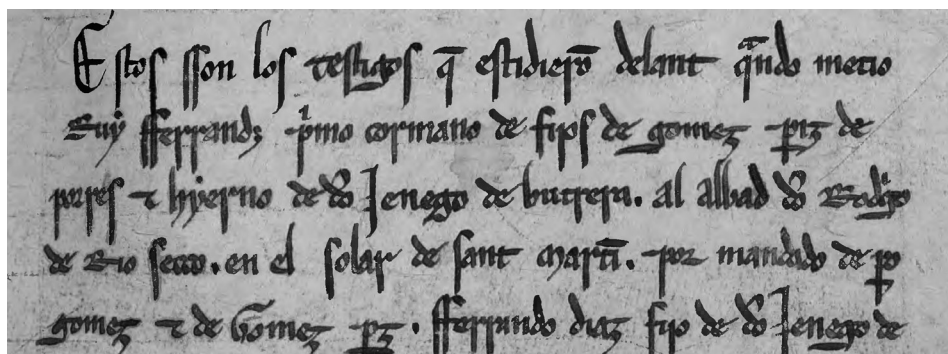 Estos sson los testigos q̄ estidierō delant q̄ndo metio
Ruy fferrandz pimo cormano de fijos de gomez pz de
porres τ hyerno de dō Jenego de butrera. al abbad dō Rodigo
de Rio secco. en el solar de sant martī. por mandado de po
gomez τ de Gomez pz. fferrando diaz fijo de dō Jenego de